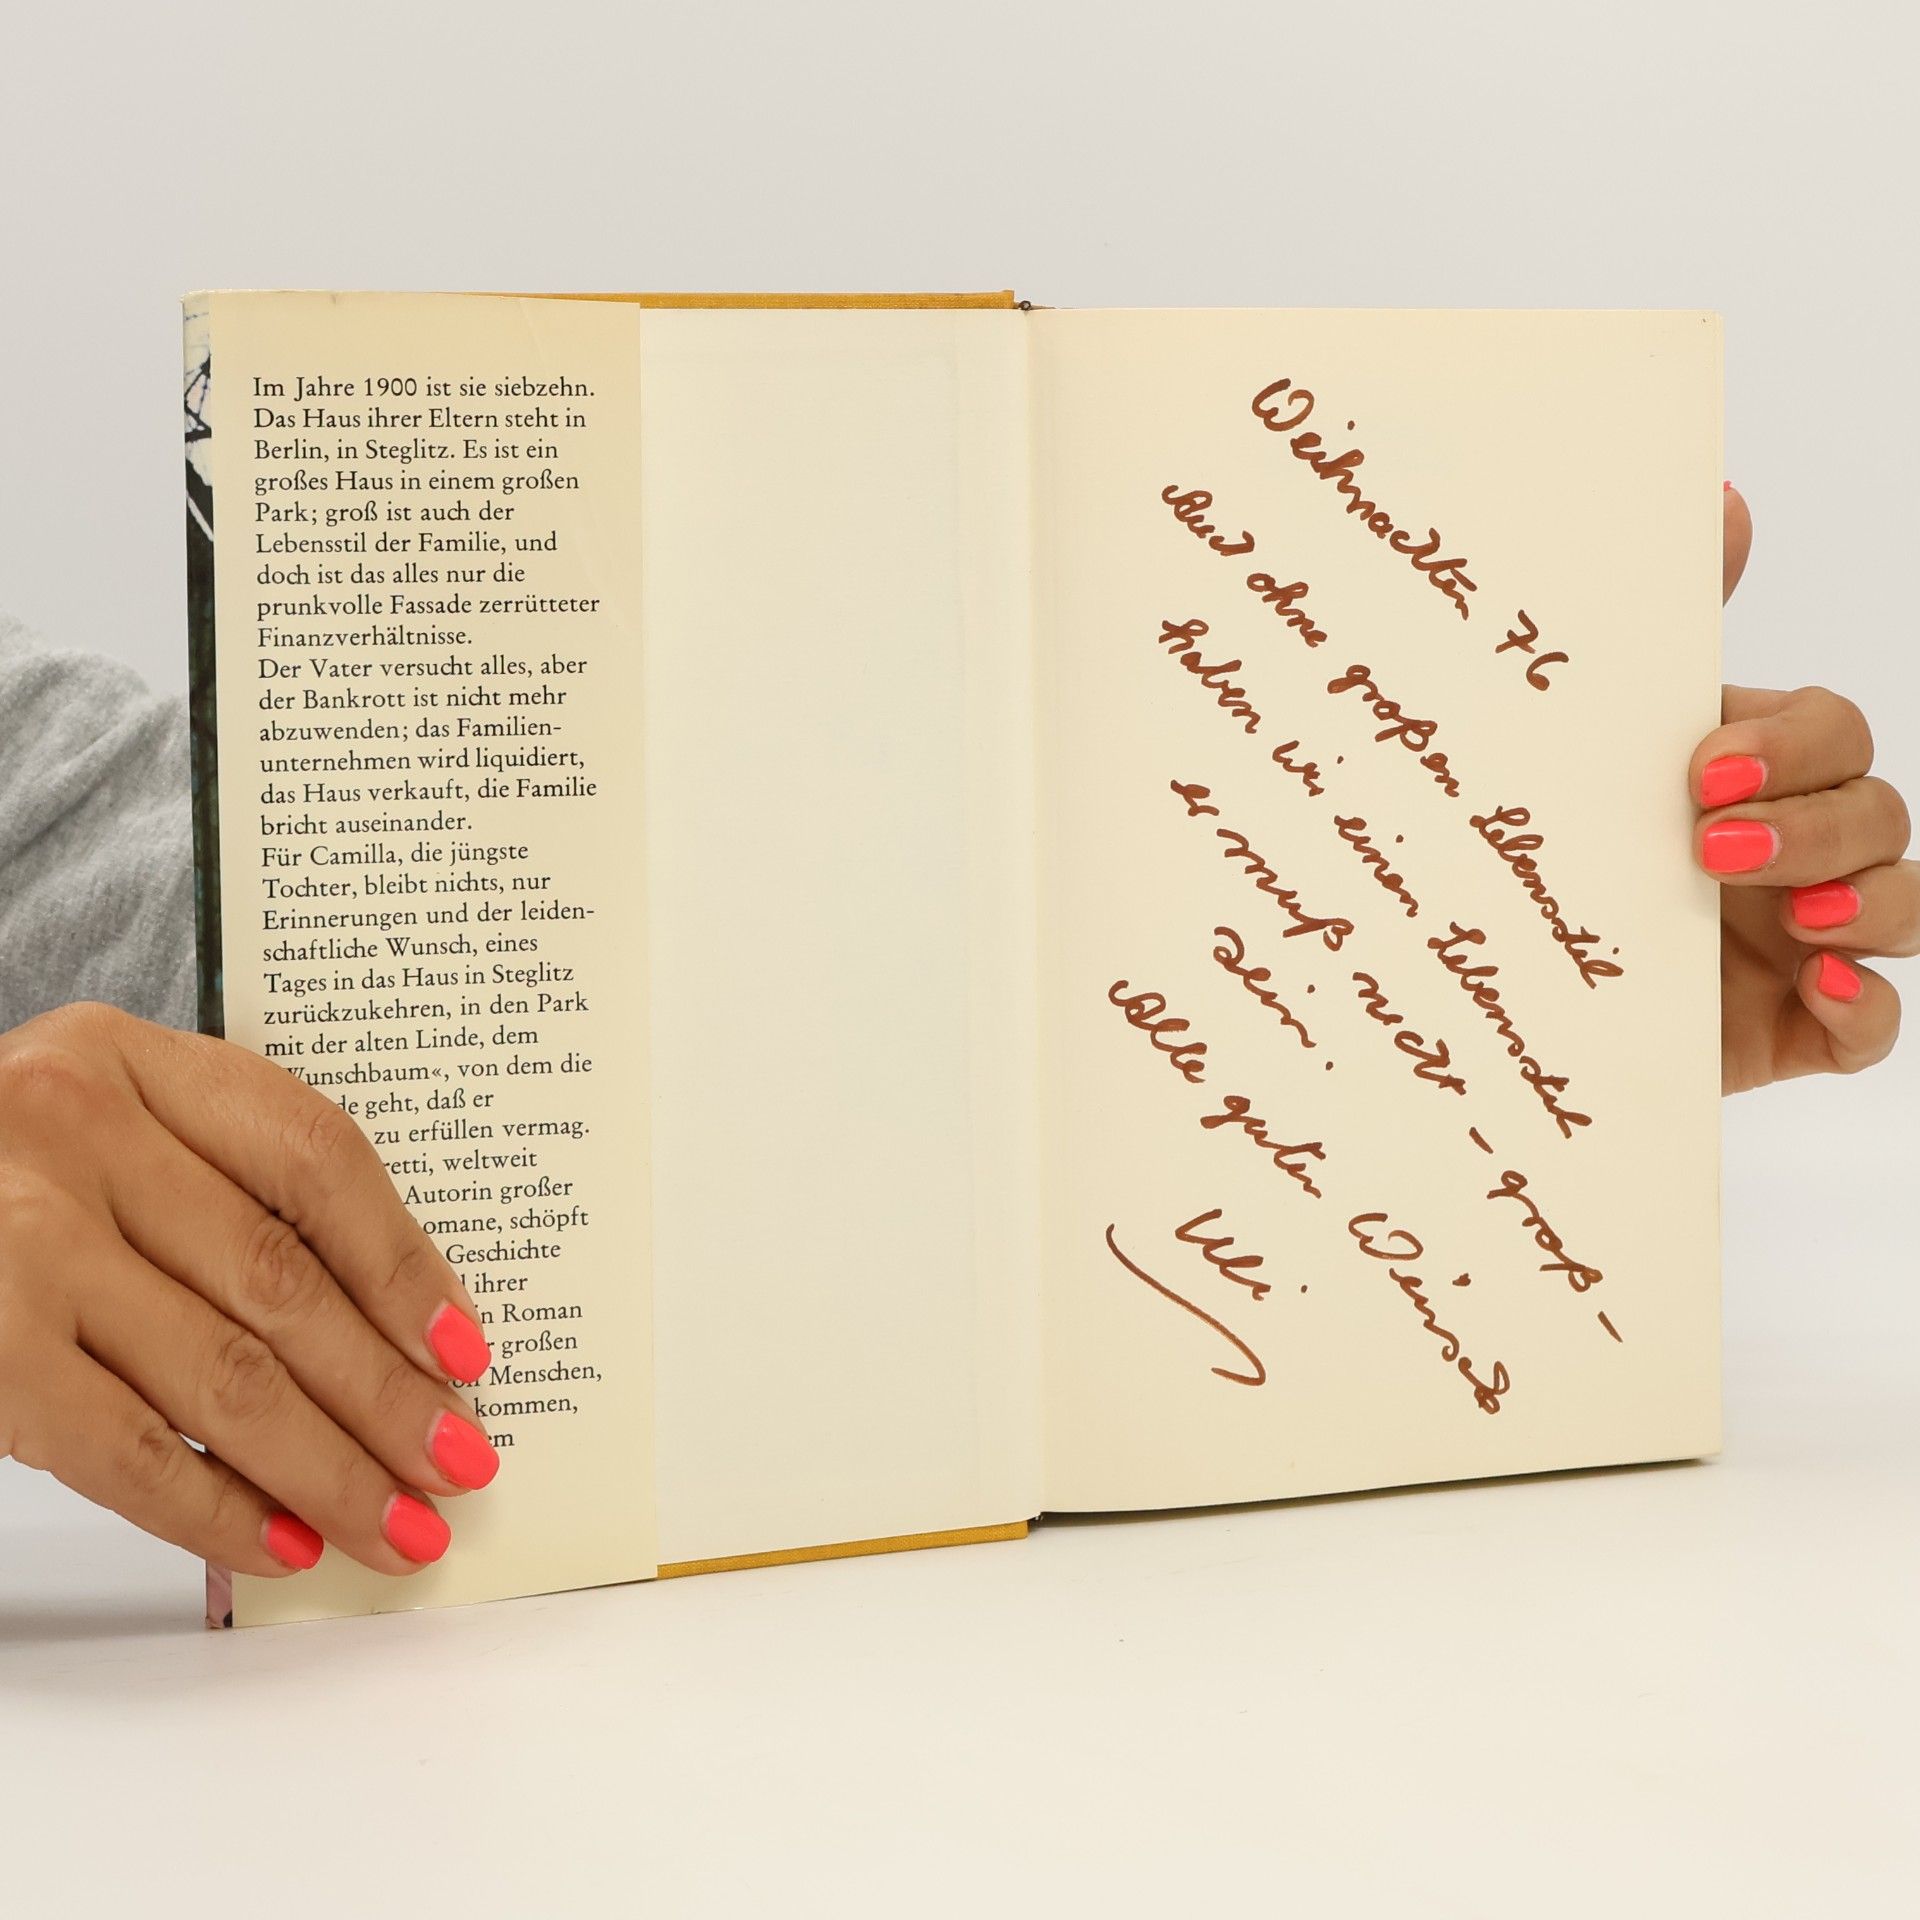 Im Jahre 1900 ist sie siebzehn.
Das Haus ihrer Eltern steht in
Berlin, in Steglitz. Es ist ein
großes Haus in einem großen
Park; groß ist auch der
Lebensstil der Familie, und
doch ist das alles nur die
prunkvolle Fassade zerrütteter
Finanzverhältnisse.
Der Vater versucht alles, aber
der Bankrott ist nicht mehr
abzuwenden; das Familien-
unternehmen wird liquidiert,
das Haus verkauft, die Familie
bricht auseinander.
Für Camilla, die jüngste
Tochter, bleibt nichts, nur
Erinnerungen und der leiden-
schaftliche Wunsch, eines
Tages in das Haus in Steglitz
zurückzukehren, in den Park
mit der alten Linde, dem
Wunschbaum«, von dem die
geht, daß er
zu erfüllen vermag.
retti, weltweit
Autorin großer
omane, schöpft
Geschichte
ihrer
in Roman
großen
Menschen,
kommen,
em
Weihnachten 76
Auch ohne großen Lebensstil
haben wir einen Lebensstil
er muß nicht - groß -
sein.
Alle guten Wünsche
Uli